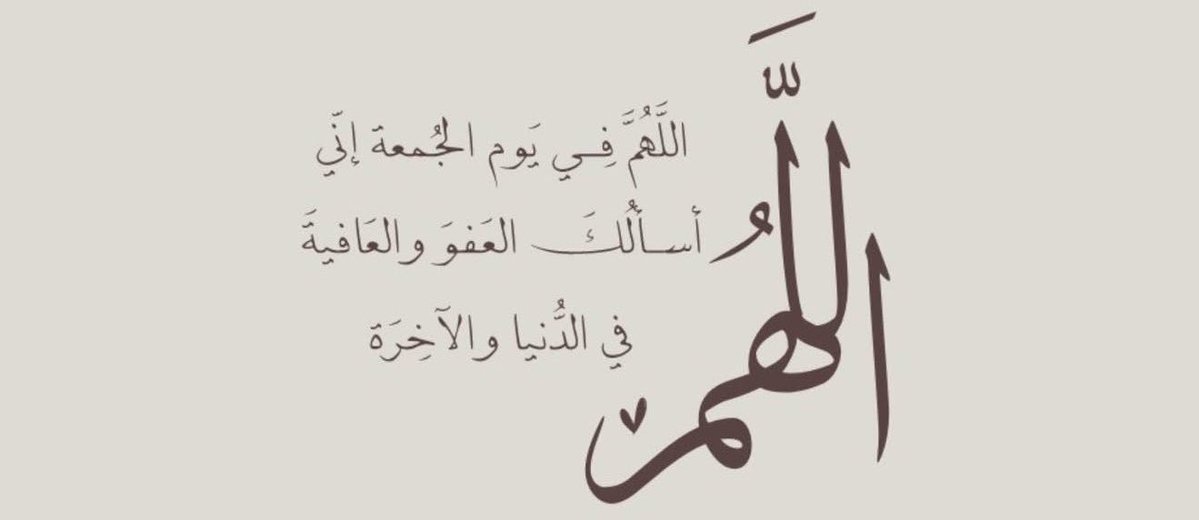 اللَّهُمَّ
اللَّهُمَّ فِي يَوم الجُمعة إنّي
أسألُكَ العَفوَ والعَافيةَ
في الدُّنيا والآخِرَة